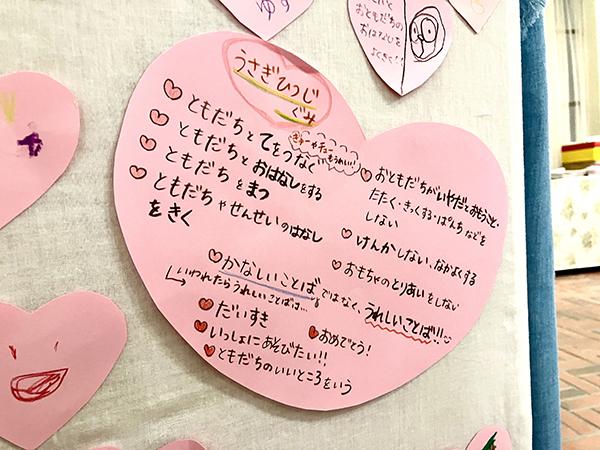 うさぎひつじ
ぐみ
ともだちとてをつなぐ
ぎゅーやチューもうれしい!!
ともだちとおはなしをする
ともだちをまつ
ともだちやせんせいのはなし
をきく
おともだちがいやだとおもうこと・
たたく・きっくする・ぱんちなどを
しない
けんかしない、なかよくする
おもちゃのとりあいをしない
かなしいことばではなく、うれしいことば!!!
いわれたらうれしいことばは…
だいすき
おめでとう!
いっしょにあそびたい!!
ともだちのいいところをいう
ゆず
おともだちの
おはなしを
よくきく!!